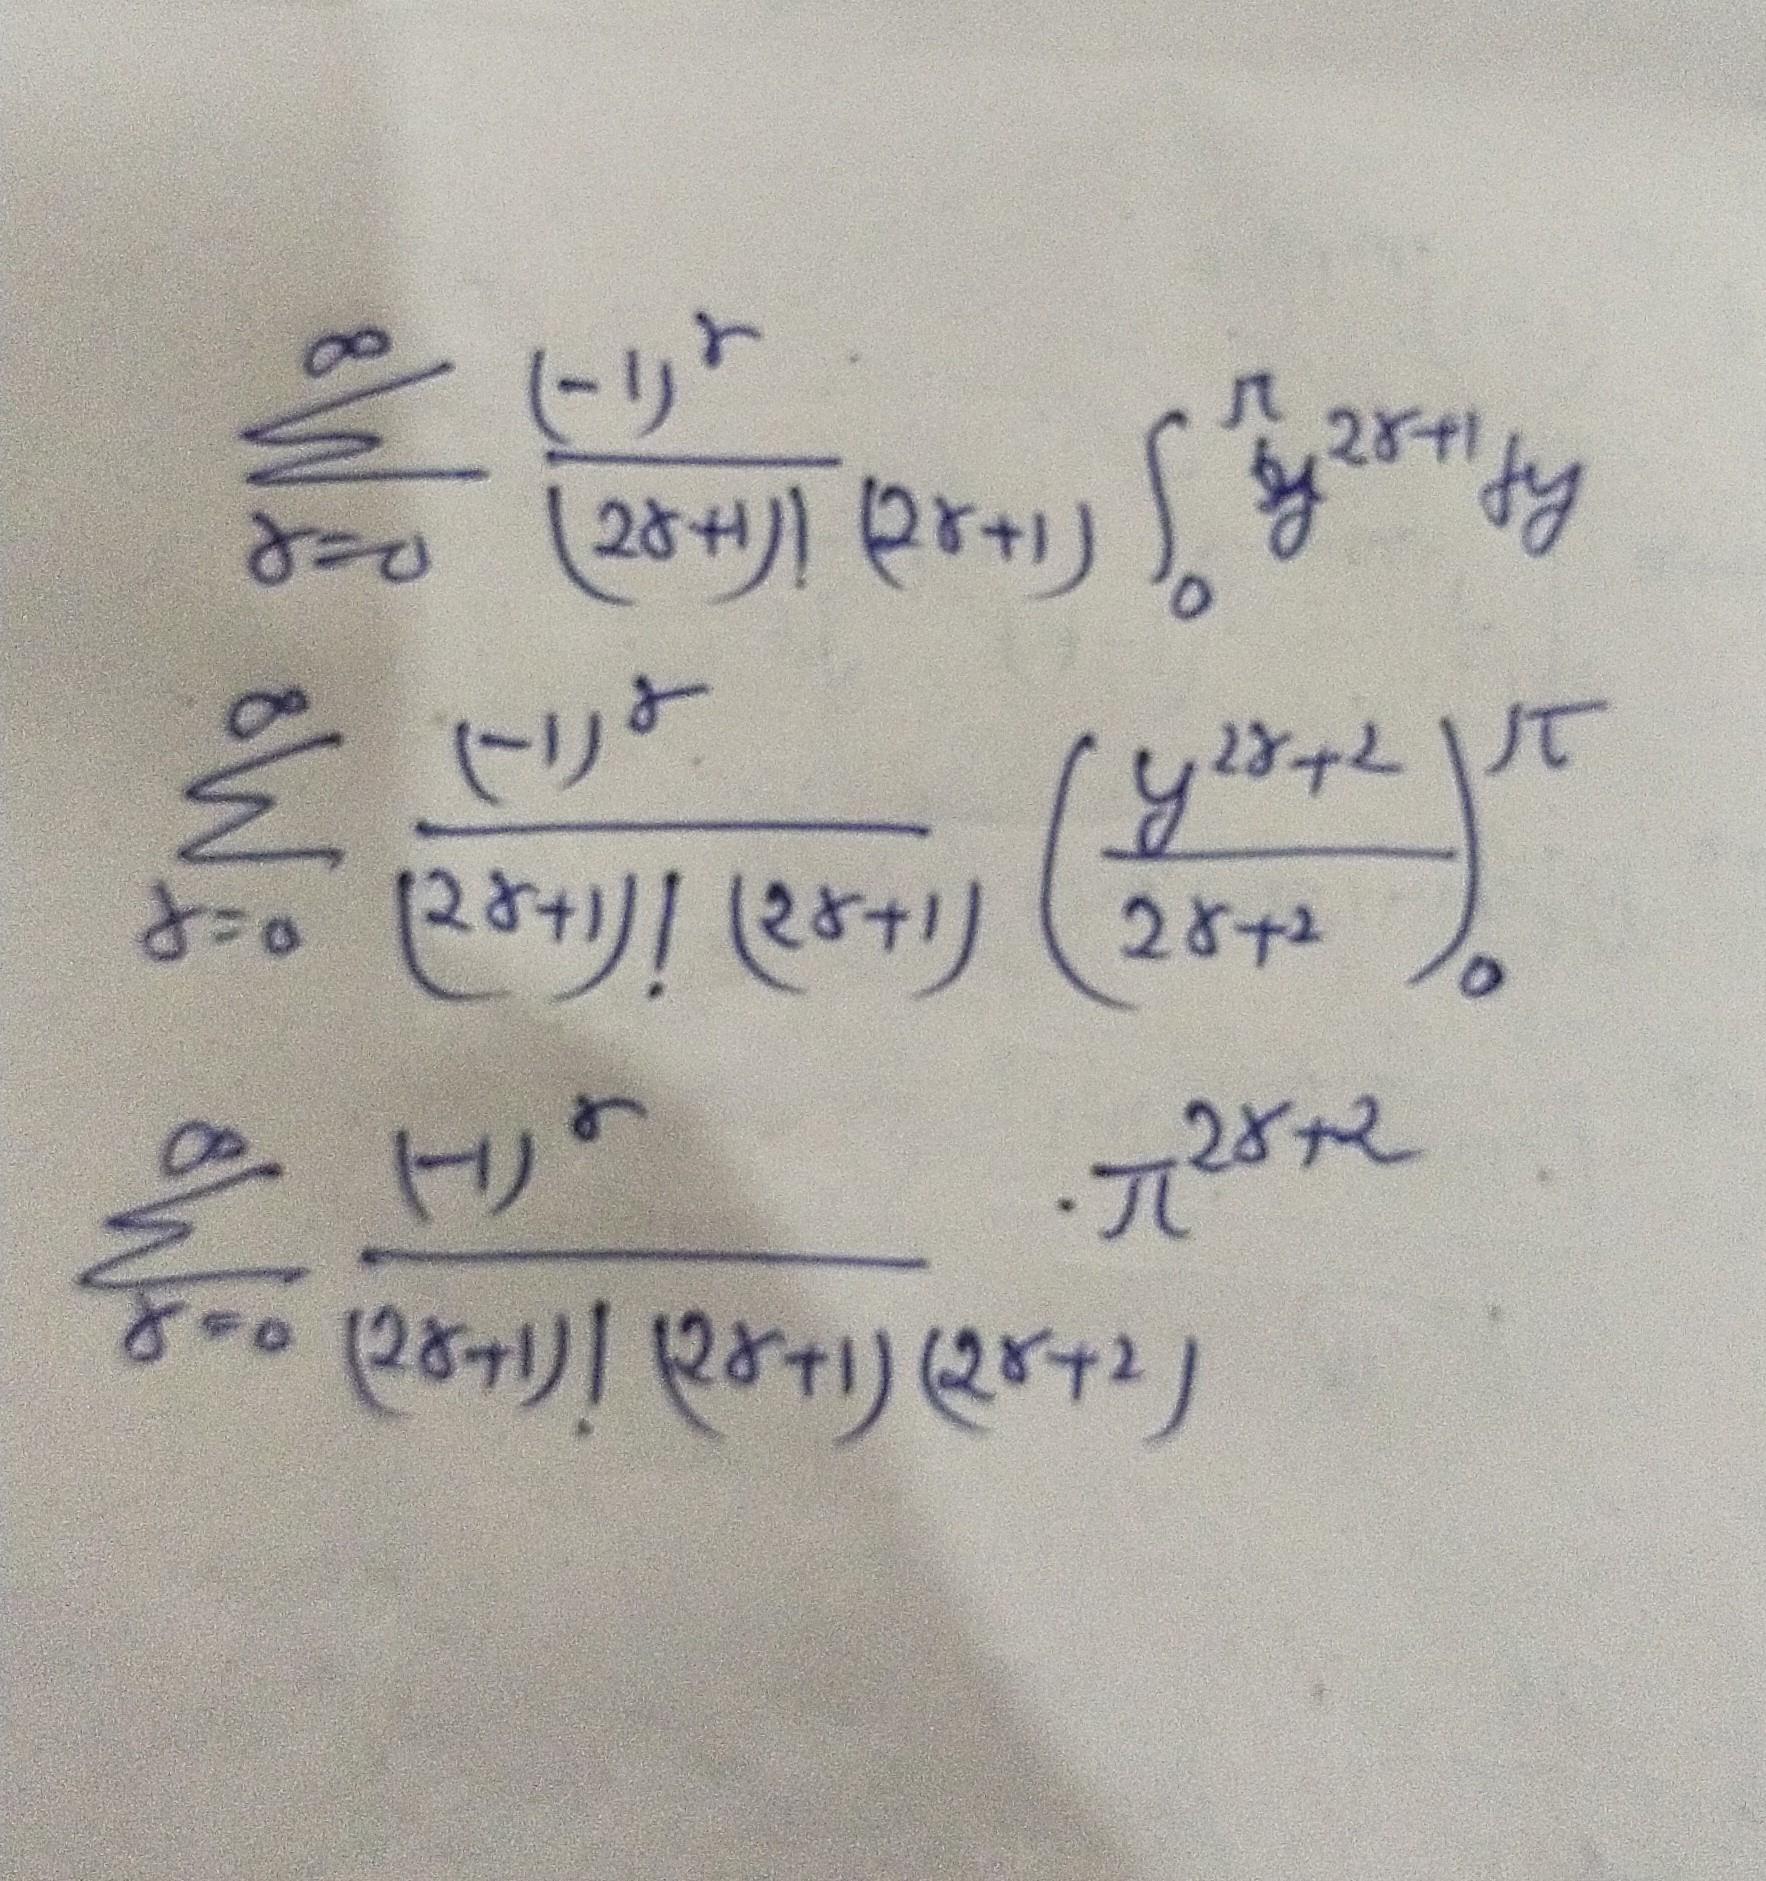 ∞∑r=0 (-1)^r / (2r+1)! (2r+1) ∫_0^π y^{2r+1} dy
∞∑r=0 (-1)^r / (2r+1)! (2r+1) (y^{2r+2} / 2r+2)_0^π
∞∑r=0 (-1)^r / (2r+1)! (2r+1) (2r+2) · π^{2r+2}